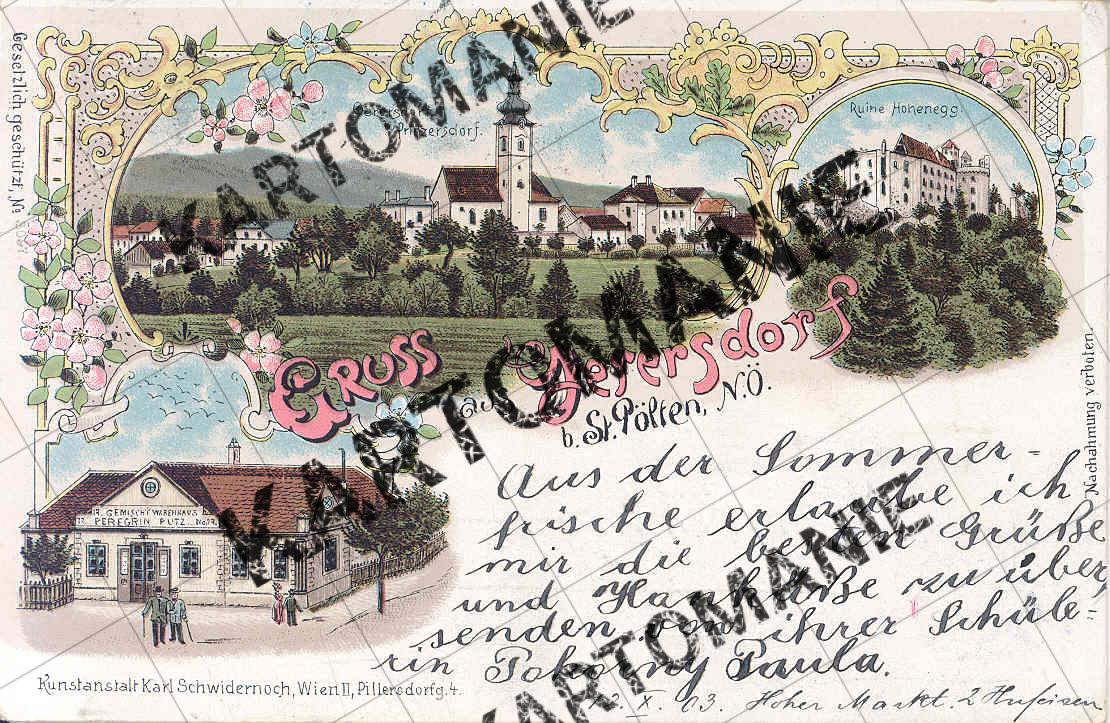 Gesetzlich geschützt, №
Prinzersdorf.
Ruine Hohenegg.
GRUSS
aus Meyersdorf
b. St. Pölten, N.Ö.
GEMISCHTWARENHAUS
PEREGRIN PUTZ
Aus der Sommer-
frische erlaube ich
mir die besten Grüße
und Handküße zu über
senden von ihrer Schüle-
rin Pokorny Paula.
X. 03. Hoher Markt 2 Hufeisen
Kunstanstalt Karl Schwidernoch, Wien II, Pillersdorfg. 4.
Nachahmung verboten.
KARTOMANIE
KARTOMANIE
KARTOMANIE
KARTOMANIE
KARTOMANIE